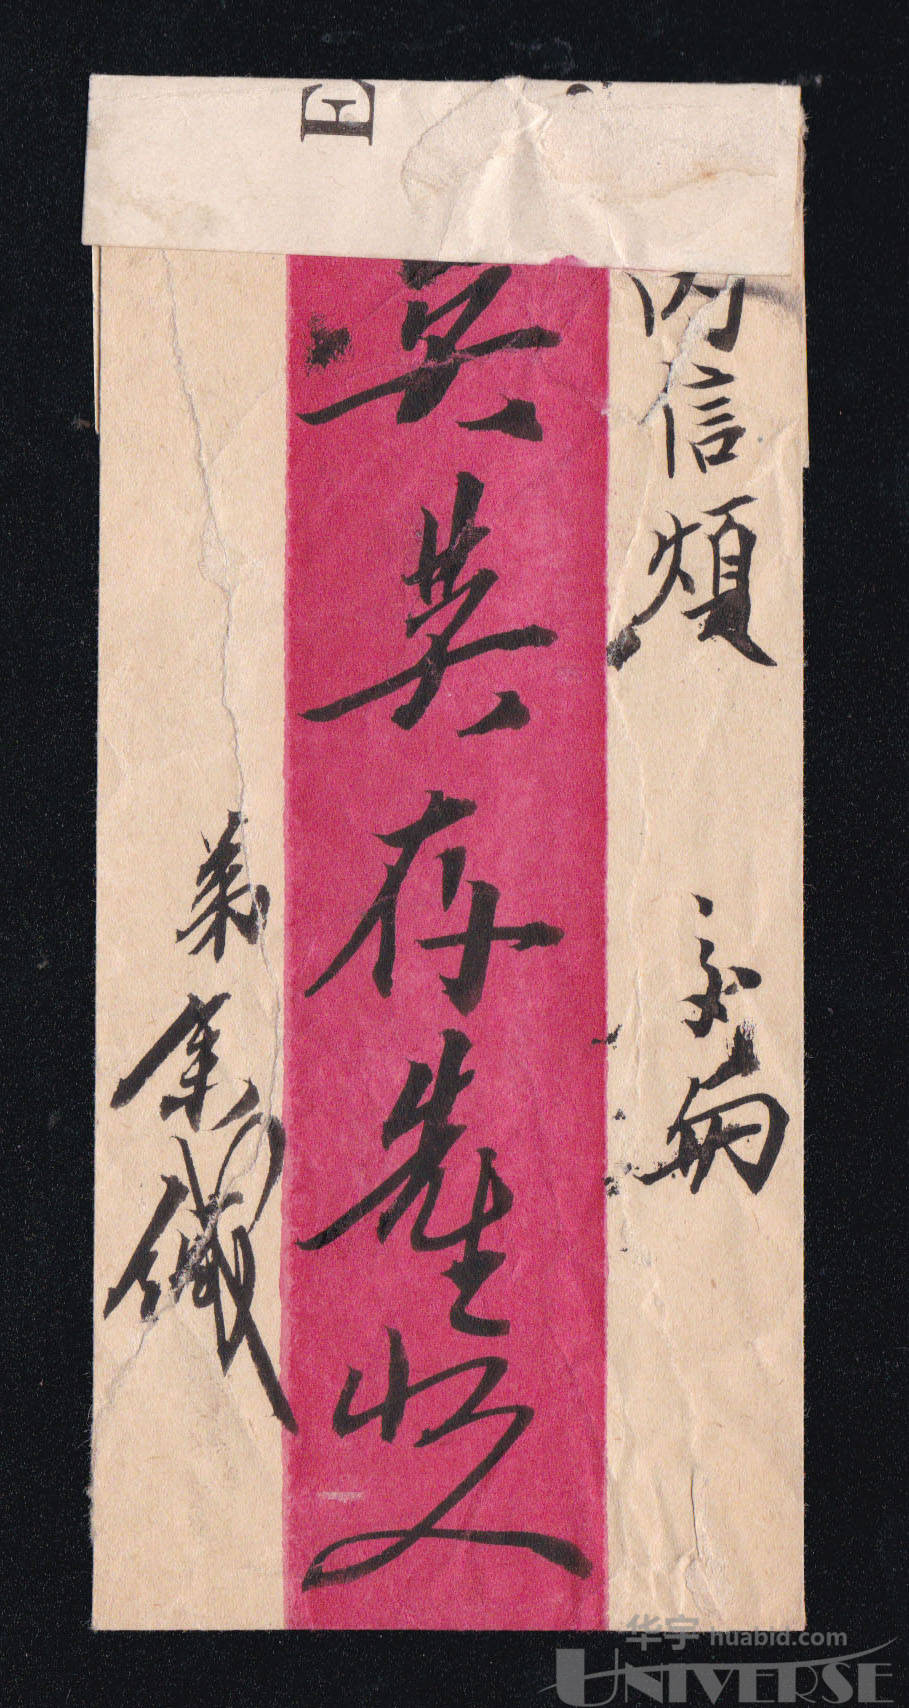 E
内信煩 交
吳英存先生收
弟余緘
华宇 huabid.com
UNIVERSE